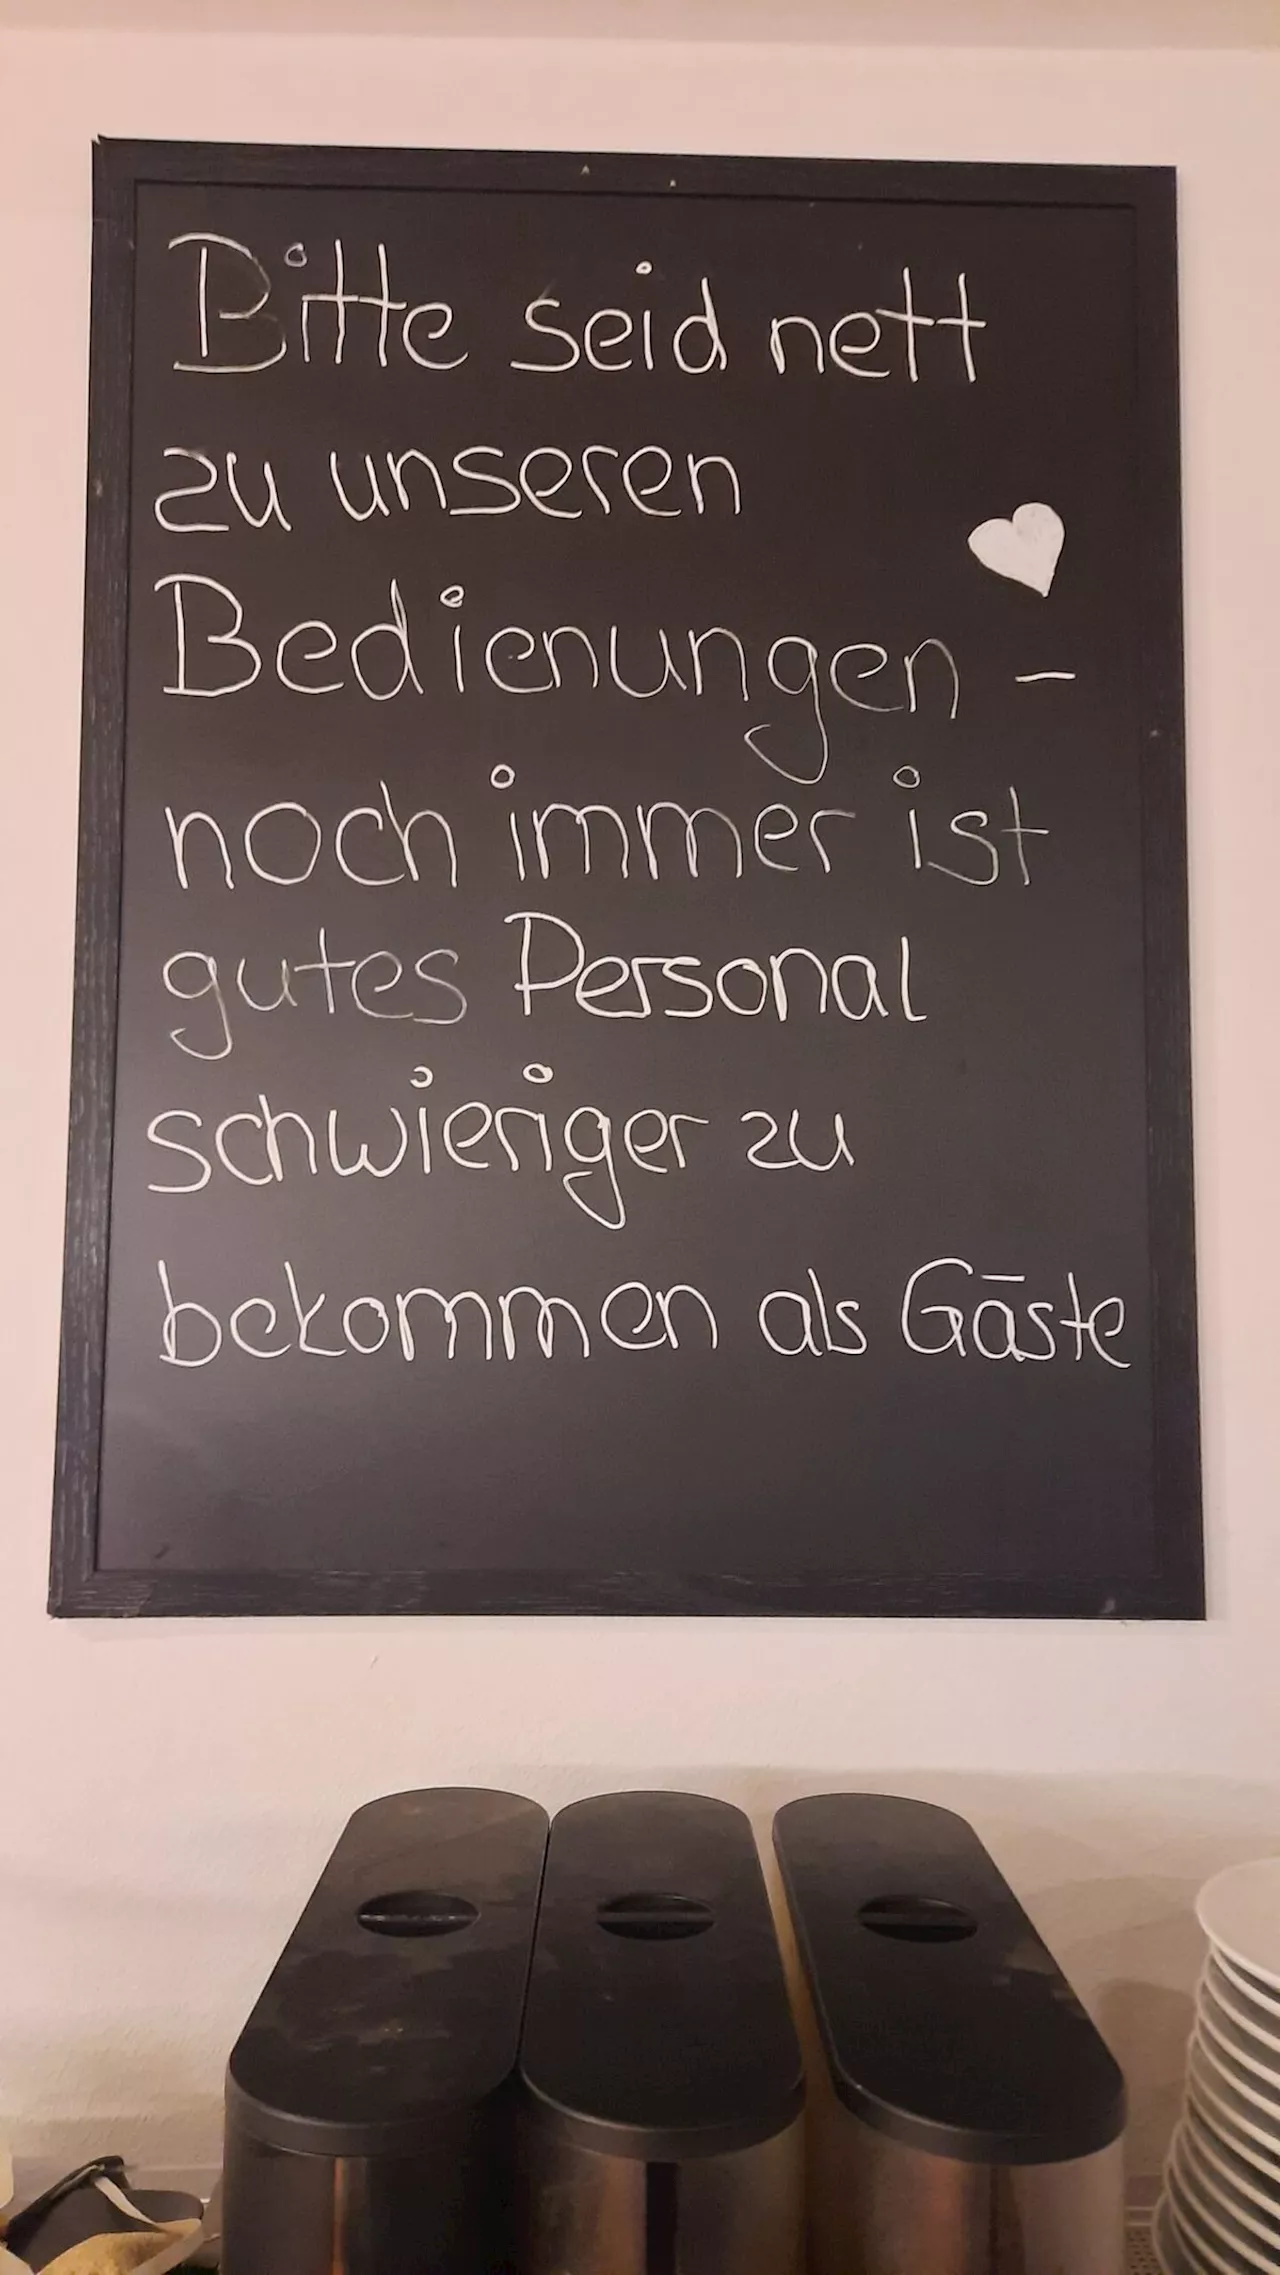 Bitte seid nett
zu unseren
Bedienungen -
noch immer ist
gutes Personal
schwieriger zu
bekommen als Gäste